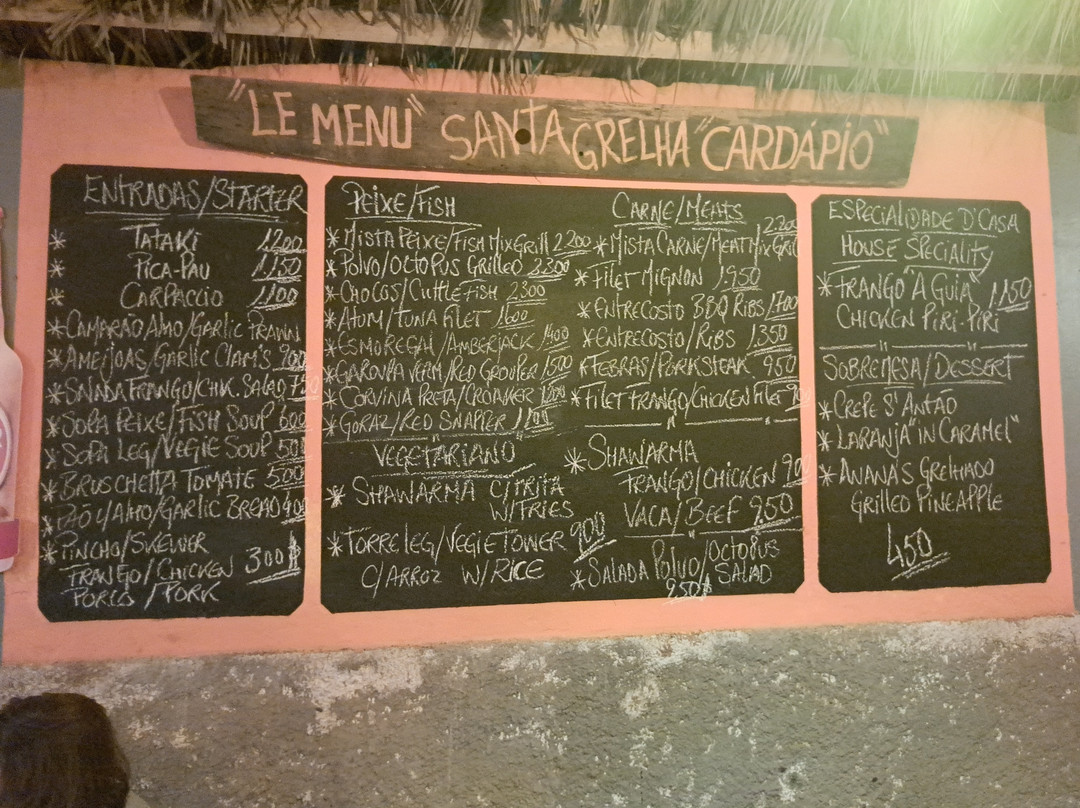 "LE MENU" SANTA GRELHA "CARDÁPIO"
ENTRADAS/STARTER
* TATAKI 1.200
* PICA-PAU 1.150
* CARPACCIO 1.100
* CAMARÃO ALHO/GARLIC PRAWN
* AMEIJOAS/GARLIC CLAM'S 700
* SALADA FRANGO/CHK. SALAD 750
* SOPA PEIXE/FISH SOUP 600
* SOPA LEG/VEGIE SOUP 500
* BRUSCHETTA TOMATE 500
* PÃO C/ALHO/GARLIC BREAD 400
* PINCHO/SKEWER
FRANGO/CHICKEN 300$
PORCO/PORK
PEIXE/FISH
* MISTA PEIXE/FISH MIX GRILL 2.200
* POLVO/OCTOPUS GRILLED 2300
* CHOCOS/CUTTLEFISH 2300
* ATUM/TUNA FILET 1.600
* ESMOREGAL/AMBERJACK 1400
* GAROUPA VERM/RED GROUPER 1.500
* CORVINA PRETA/CROAKER 1200
* GORAZ/RED SNAPPER 1100
"VEGETARIANO"
* SHAWARMA C/FRITA
W/FRIES
* TORRE LEG/VEGIE TOWER 900
C/ARROZ W/RICE
CARNE/MEATS
* MISTA CARNE/MEAT MIX GRILL 2.200
* FILET MIGNON 1.950
* ENTRECOSTO BBQ RIBS 1.700
* ENTRECOSTO/RIBS 1.350
* FEBRAS/PORKSTEAK 950
* FILET FRANGO/CHICKEN FILET 900
* SHAWARMA
FRANGO/CHICKEN 900
VACA/BEEF 950
* SALADA POLVO/OCTOPUS
SALAD
950$
ESPECIALIDADE D'CASA
HOUSE SPECIALITY
* FRANGO "A GUIA" 1.150
CHICKEN PIRI-PIRI
SOBREMESA/DESSERT
* CREPE S'ANTAO
* LARANJA "IN CARAMEL"
* ANANA'S GRELHADO
GRILLED PINEAPPLE
450